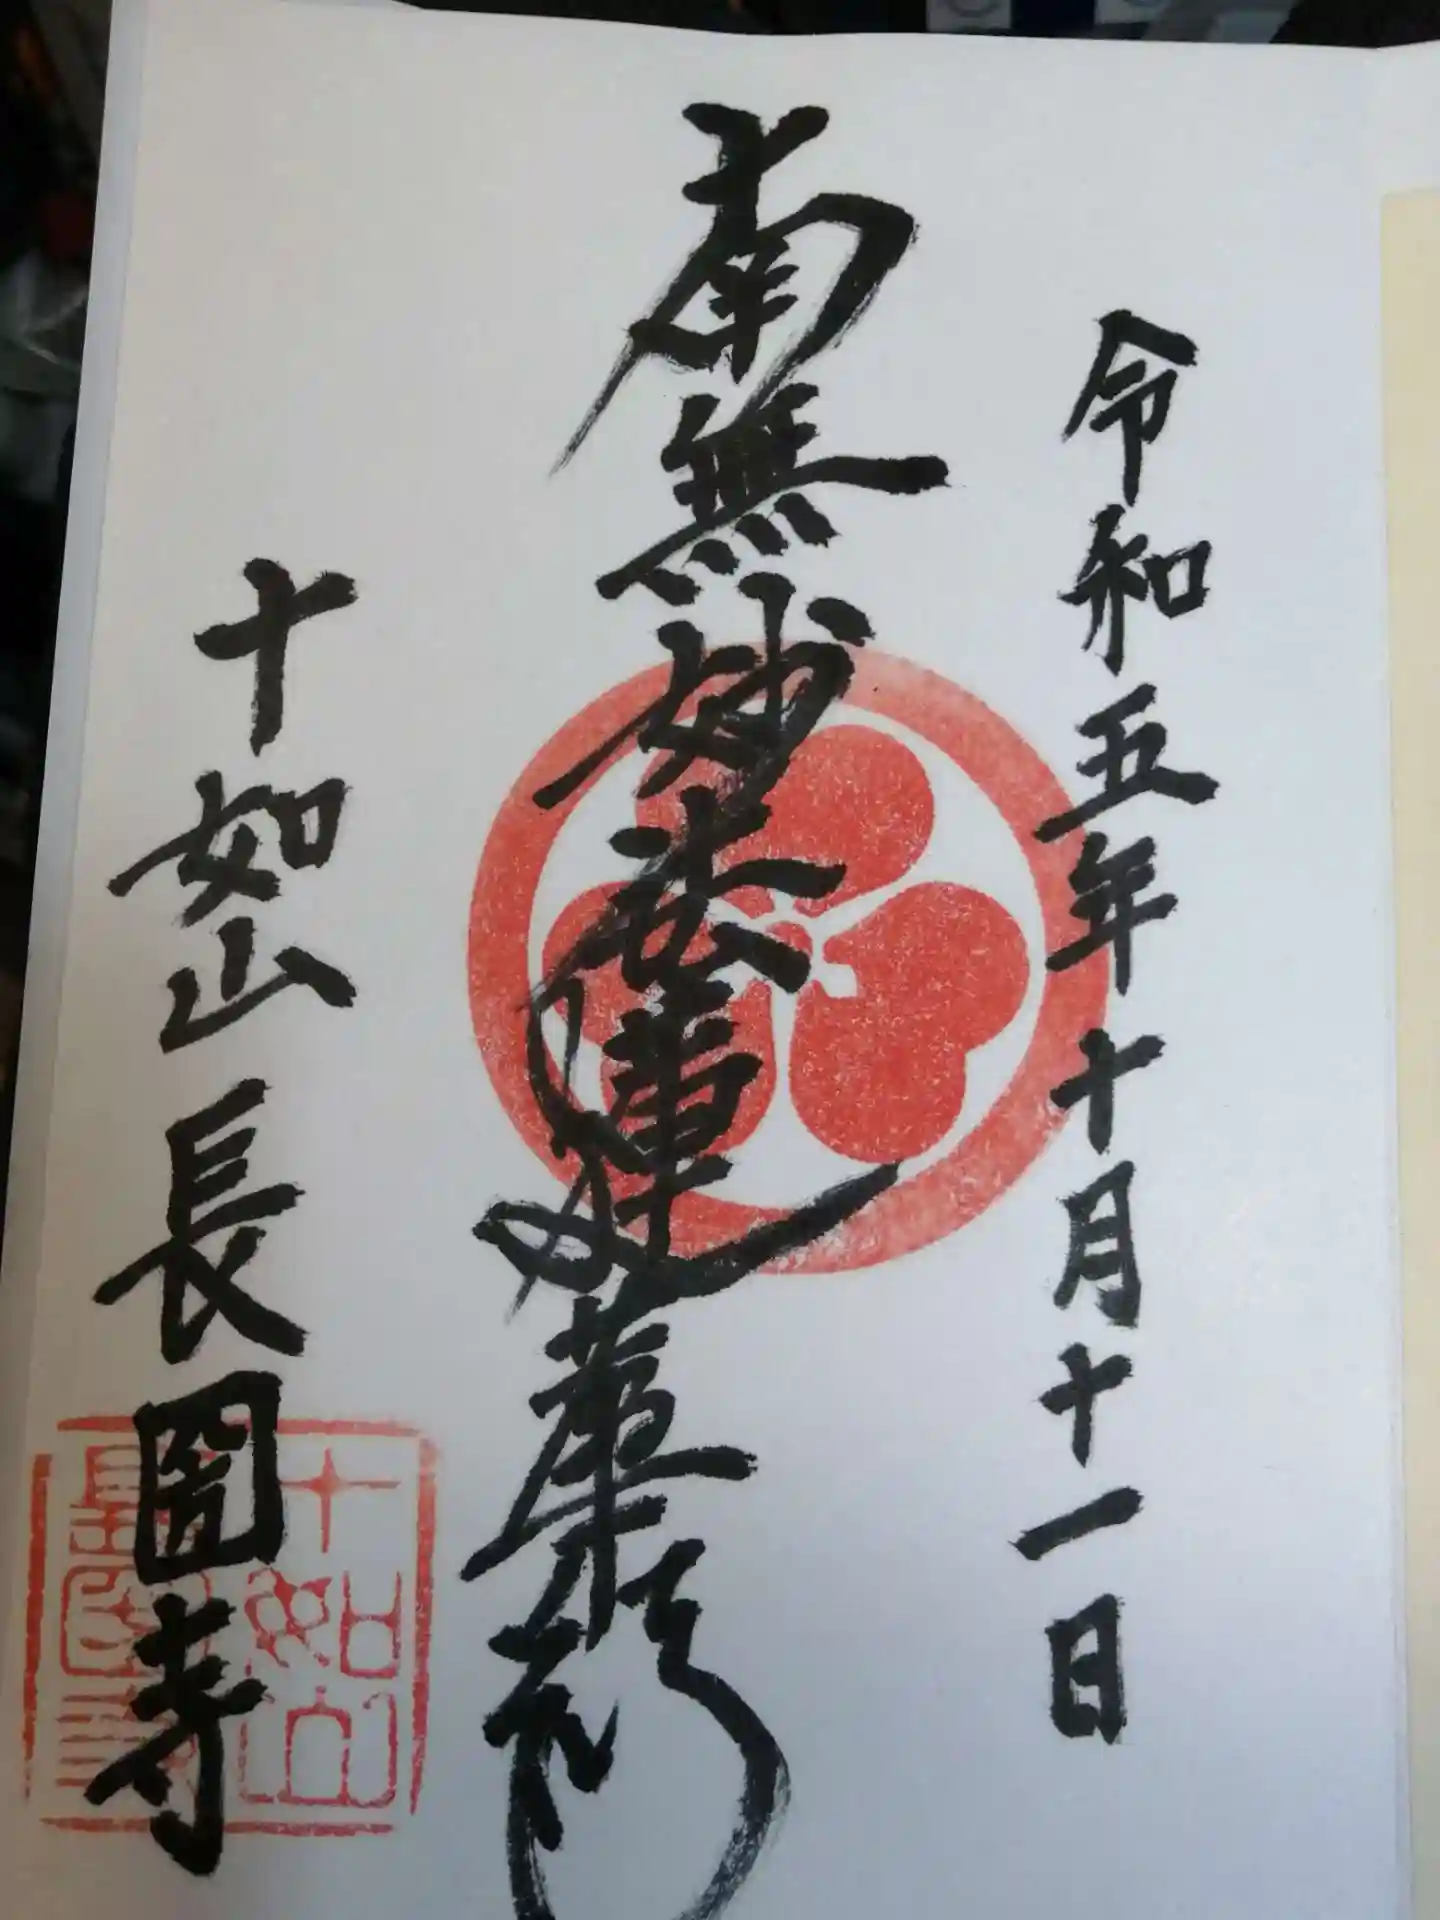 令和五年十月十一日
南無妙法蓮華経
十如山長圀寺
十如山